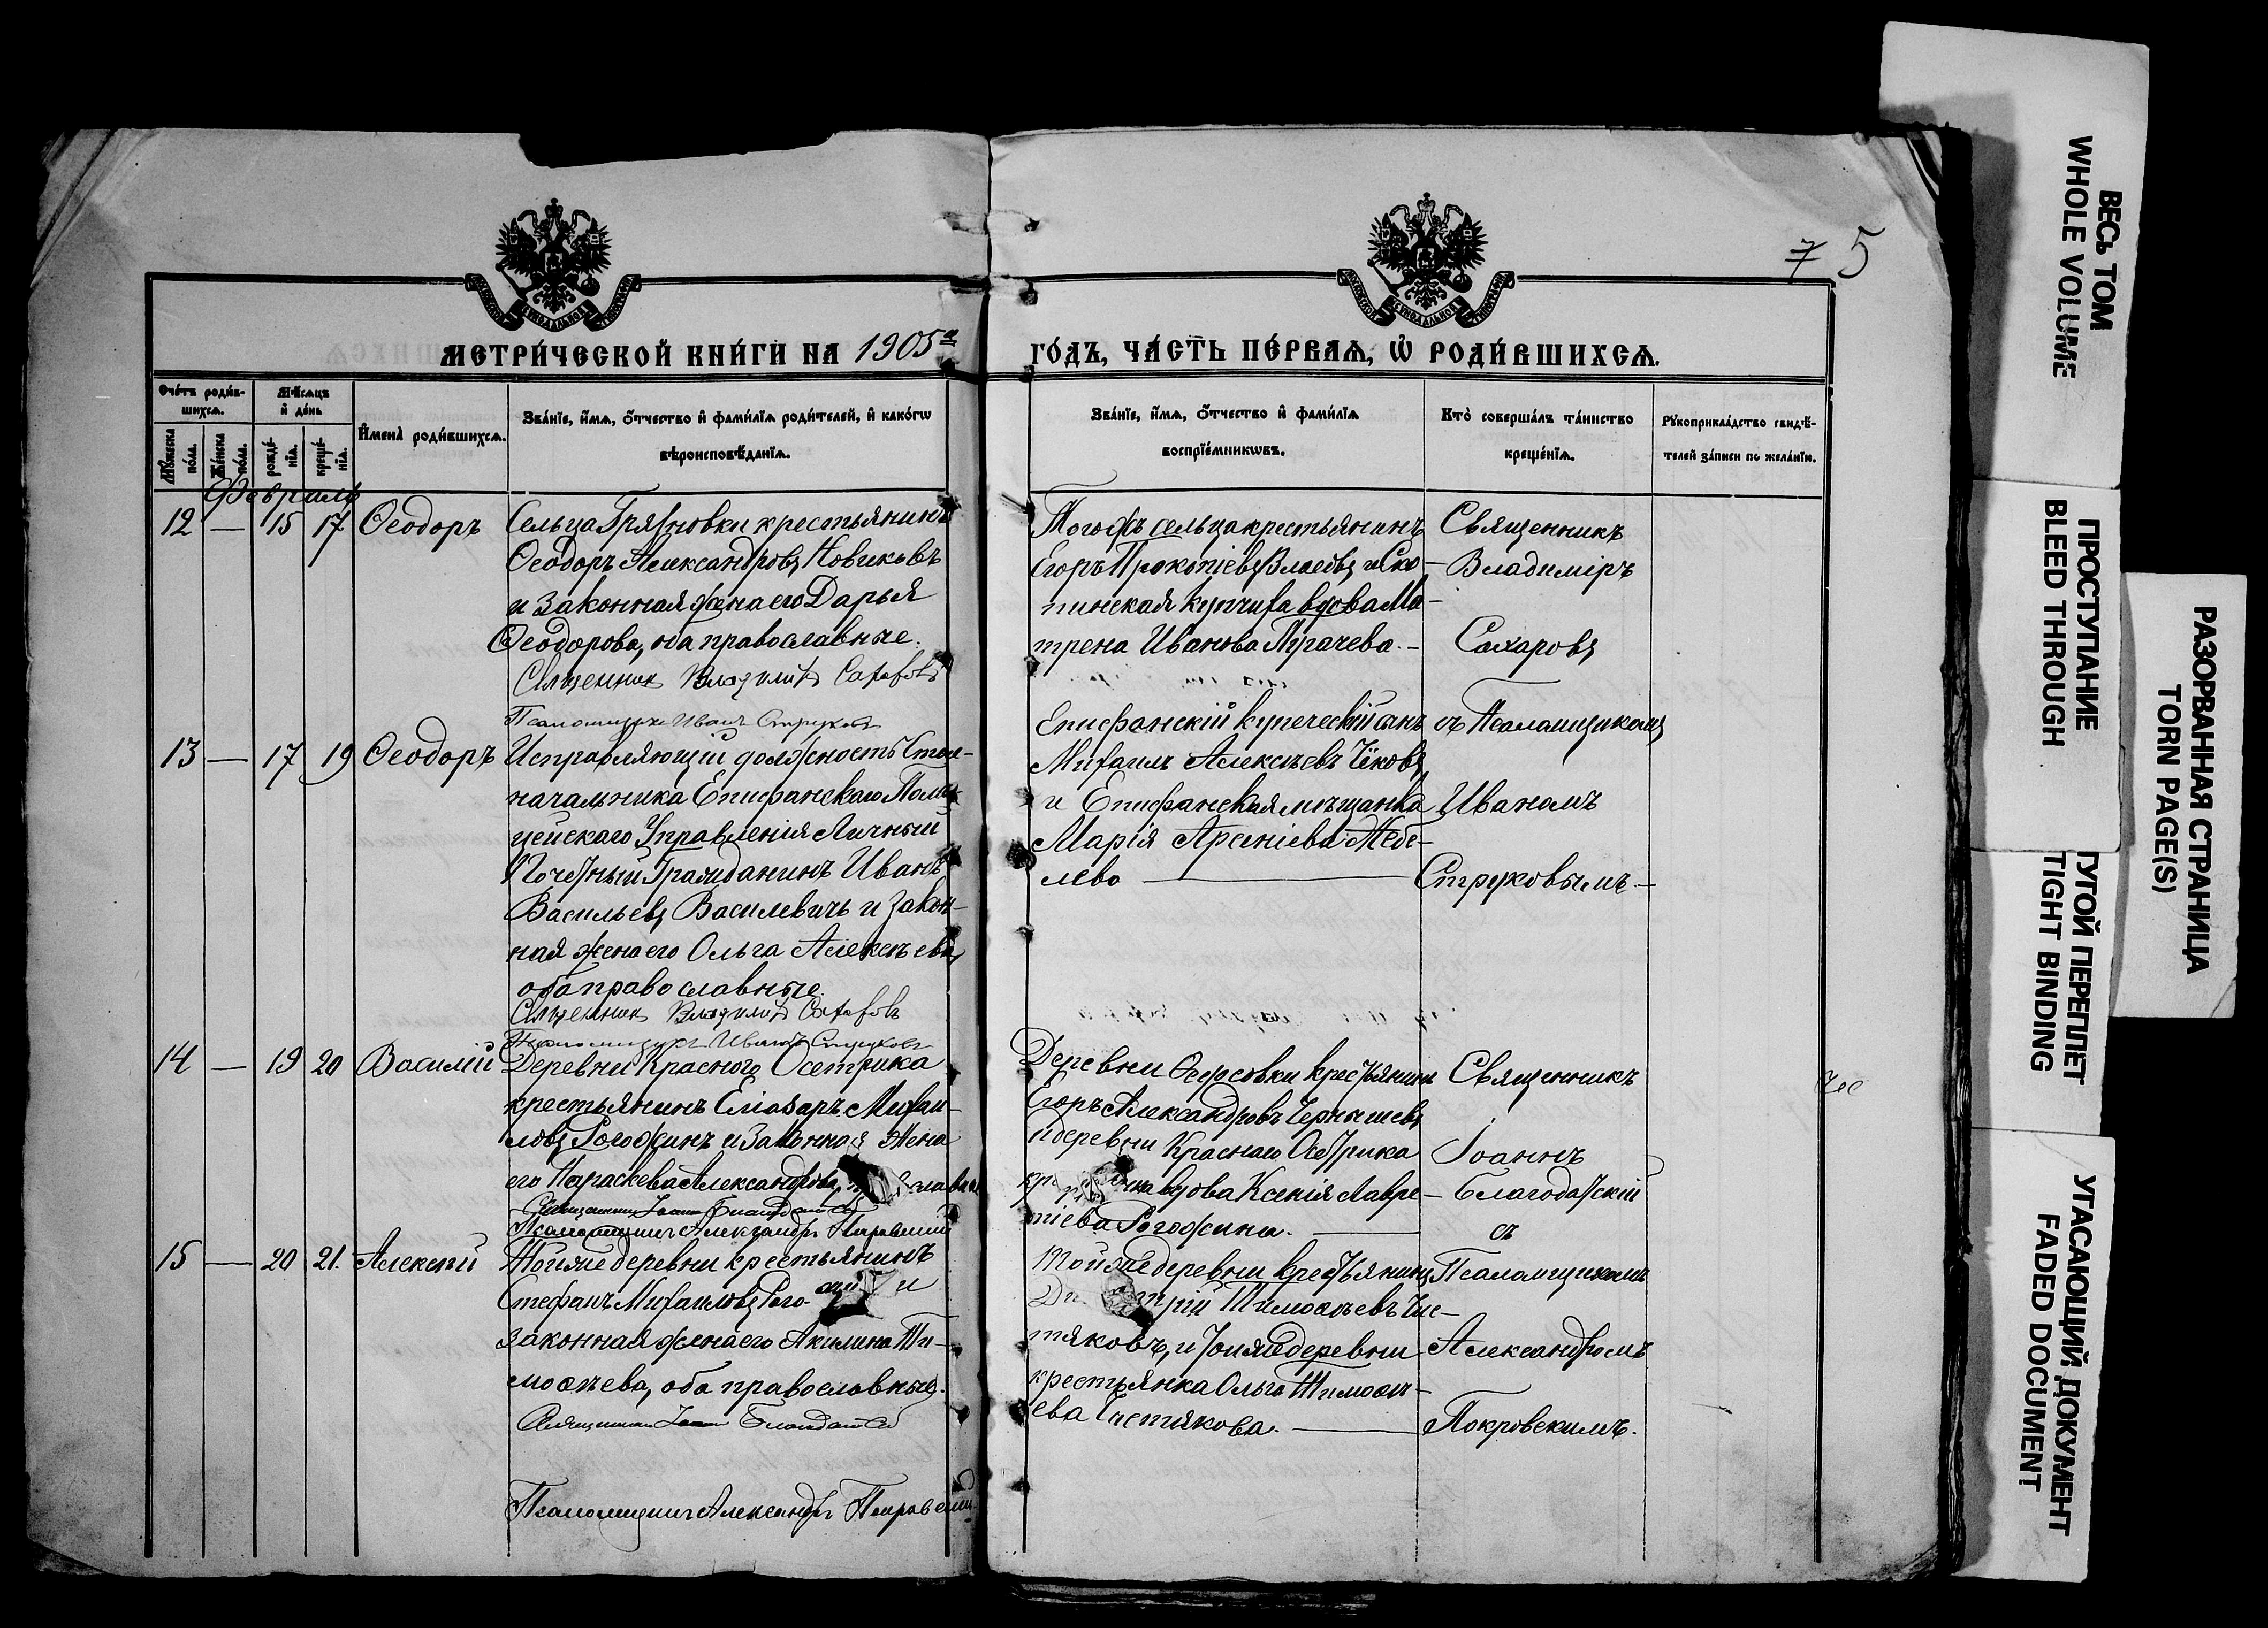 7 5
МЕТРИ́ЧЕСКОЙ КНИ́ГИ НА 1905й
ГО́ДЪ, ЧА́СТЬ ПЕ́РВАѦ, Ѡ҆ РОДИ́ВШИХСѦ.
Сче́тъ роди́в-
шихсѧ.
Мѣ́сѧцъ
и҆ де́нь
Мꙋ́жеска
по́ла.
Же́нска
по́ла.
рожде́-
нїѧ.
креще́-
нїѧ.
И҆мена̀ роди́вшихсѧ.
Зва́нїе, и҆́мѧ, ѻ҆́тчество и҆ фами́лїѧ роди́телей, и҆ како́гѡ
вѣроисповѣ́данїѧ.
Зва́нїе, и҆́мѧ, ѻ҆́тчество и҆ фами́лїѧ
воспрїе́мникѡвъ.
Кто̀ соверша́лъ та́инство
креще́нїѧ.
Рꙋкоприкла́дство свидѣ́-
телей за́писи по жела́нїю.
Февраль
12 — 15 17 Ѳеодоръ
Сельца Грязновки крестьянинъ
Ѳеодоръ Александровъ Новиковъ
и законная жена его Дарья
Ѳеодорова, оба православные.
Священникъ Владиміръ Сахаровъ
Псаломщикъ Иванъ Струковъ
Тогожъ сельца крестьянинъ
Егоръ Прокопіевъ Власовъ и Ско-
пинская купчиха вдова Ма-
трена Иванова Пугачева. —
Священникъ
Владиміръ
Сахаровъ
13 — 17 19 Ѳеодоръ
Исправляющій должность Стол-
начальника Епифанскаго Поли-
цейскаго Управленія Личный
Почетный Гражданинъ Иванъ
Васильевъ Василевичъ и закон-
ная жена его Ольга Алексѣева,
оба православные.
Священникъ Владиміръ Сахаровъ
Псаломщикъ Иванъ Струковъ
Епифанскій купеческій сынъ
Михаилъ Алексѣевъ
и Епифанская мѣщанка
Марія Арсеніева Жебе-
лева
съ Псаломщикомъ
Иваномъ
Струковымъ. —
14 — 19 20 Василій
Деревни Краснаго Осетрика
крестьянинъ Еліазаръ Михаи-
ловъ Рогожинъ и законная жена
его Параскева Александрова, славные
Священникъ Іоаннъ Благодатскій
Псаломщикъ Александръ Покровскій
Деревни крестьянинъ
Егоръ Александровъ Чернышевъ
и деревни Краснаго Осетрика
вдова Ксенія Лавре-
нтіева Рогожина.
Священникъ
Іоаннъ
Благодатскій
съ
15 — 20 21. Алексѣй
Тойже деревни крестьянинъ
Стефанъ Михаиловъ Рого- и
законная жена его Акилина Ти-
моѳѣева, оба православные.
Священникъ Іоаннъ Благодатскій
Псаломщикъ Александръ Покровскій
Тойже деревни крестьянинъ
Димитрій Тимоѳѣевъ Чис-
тяковъ, и тойже деревни
крестьянка Ольга Тимоѳѣ-
ева Чистякова.
Псаломщикомъ
Александромъ
Покровскимъ.
ВЕСЬ ТОМ
WHOLE VOLUME
ПРОСТУПАНИЕ
BLEED THROUGH
ТУГОЙ ПЕРЕПЛЕТ
TIGHT BINDING
УГАСАЮЩИЙ ДОКУМЕНТ
FADED DOCUMENT
РАЗОРВАННАЯ СТРАНИЦА
TORN PAGE(S)